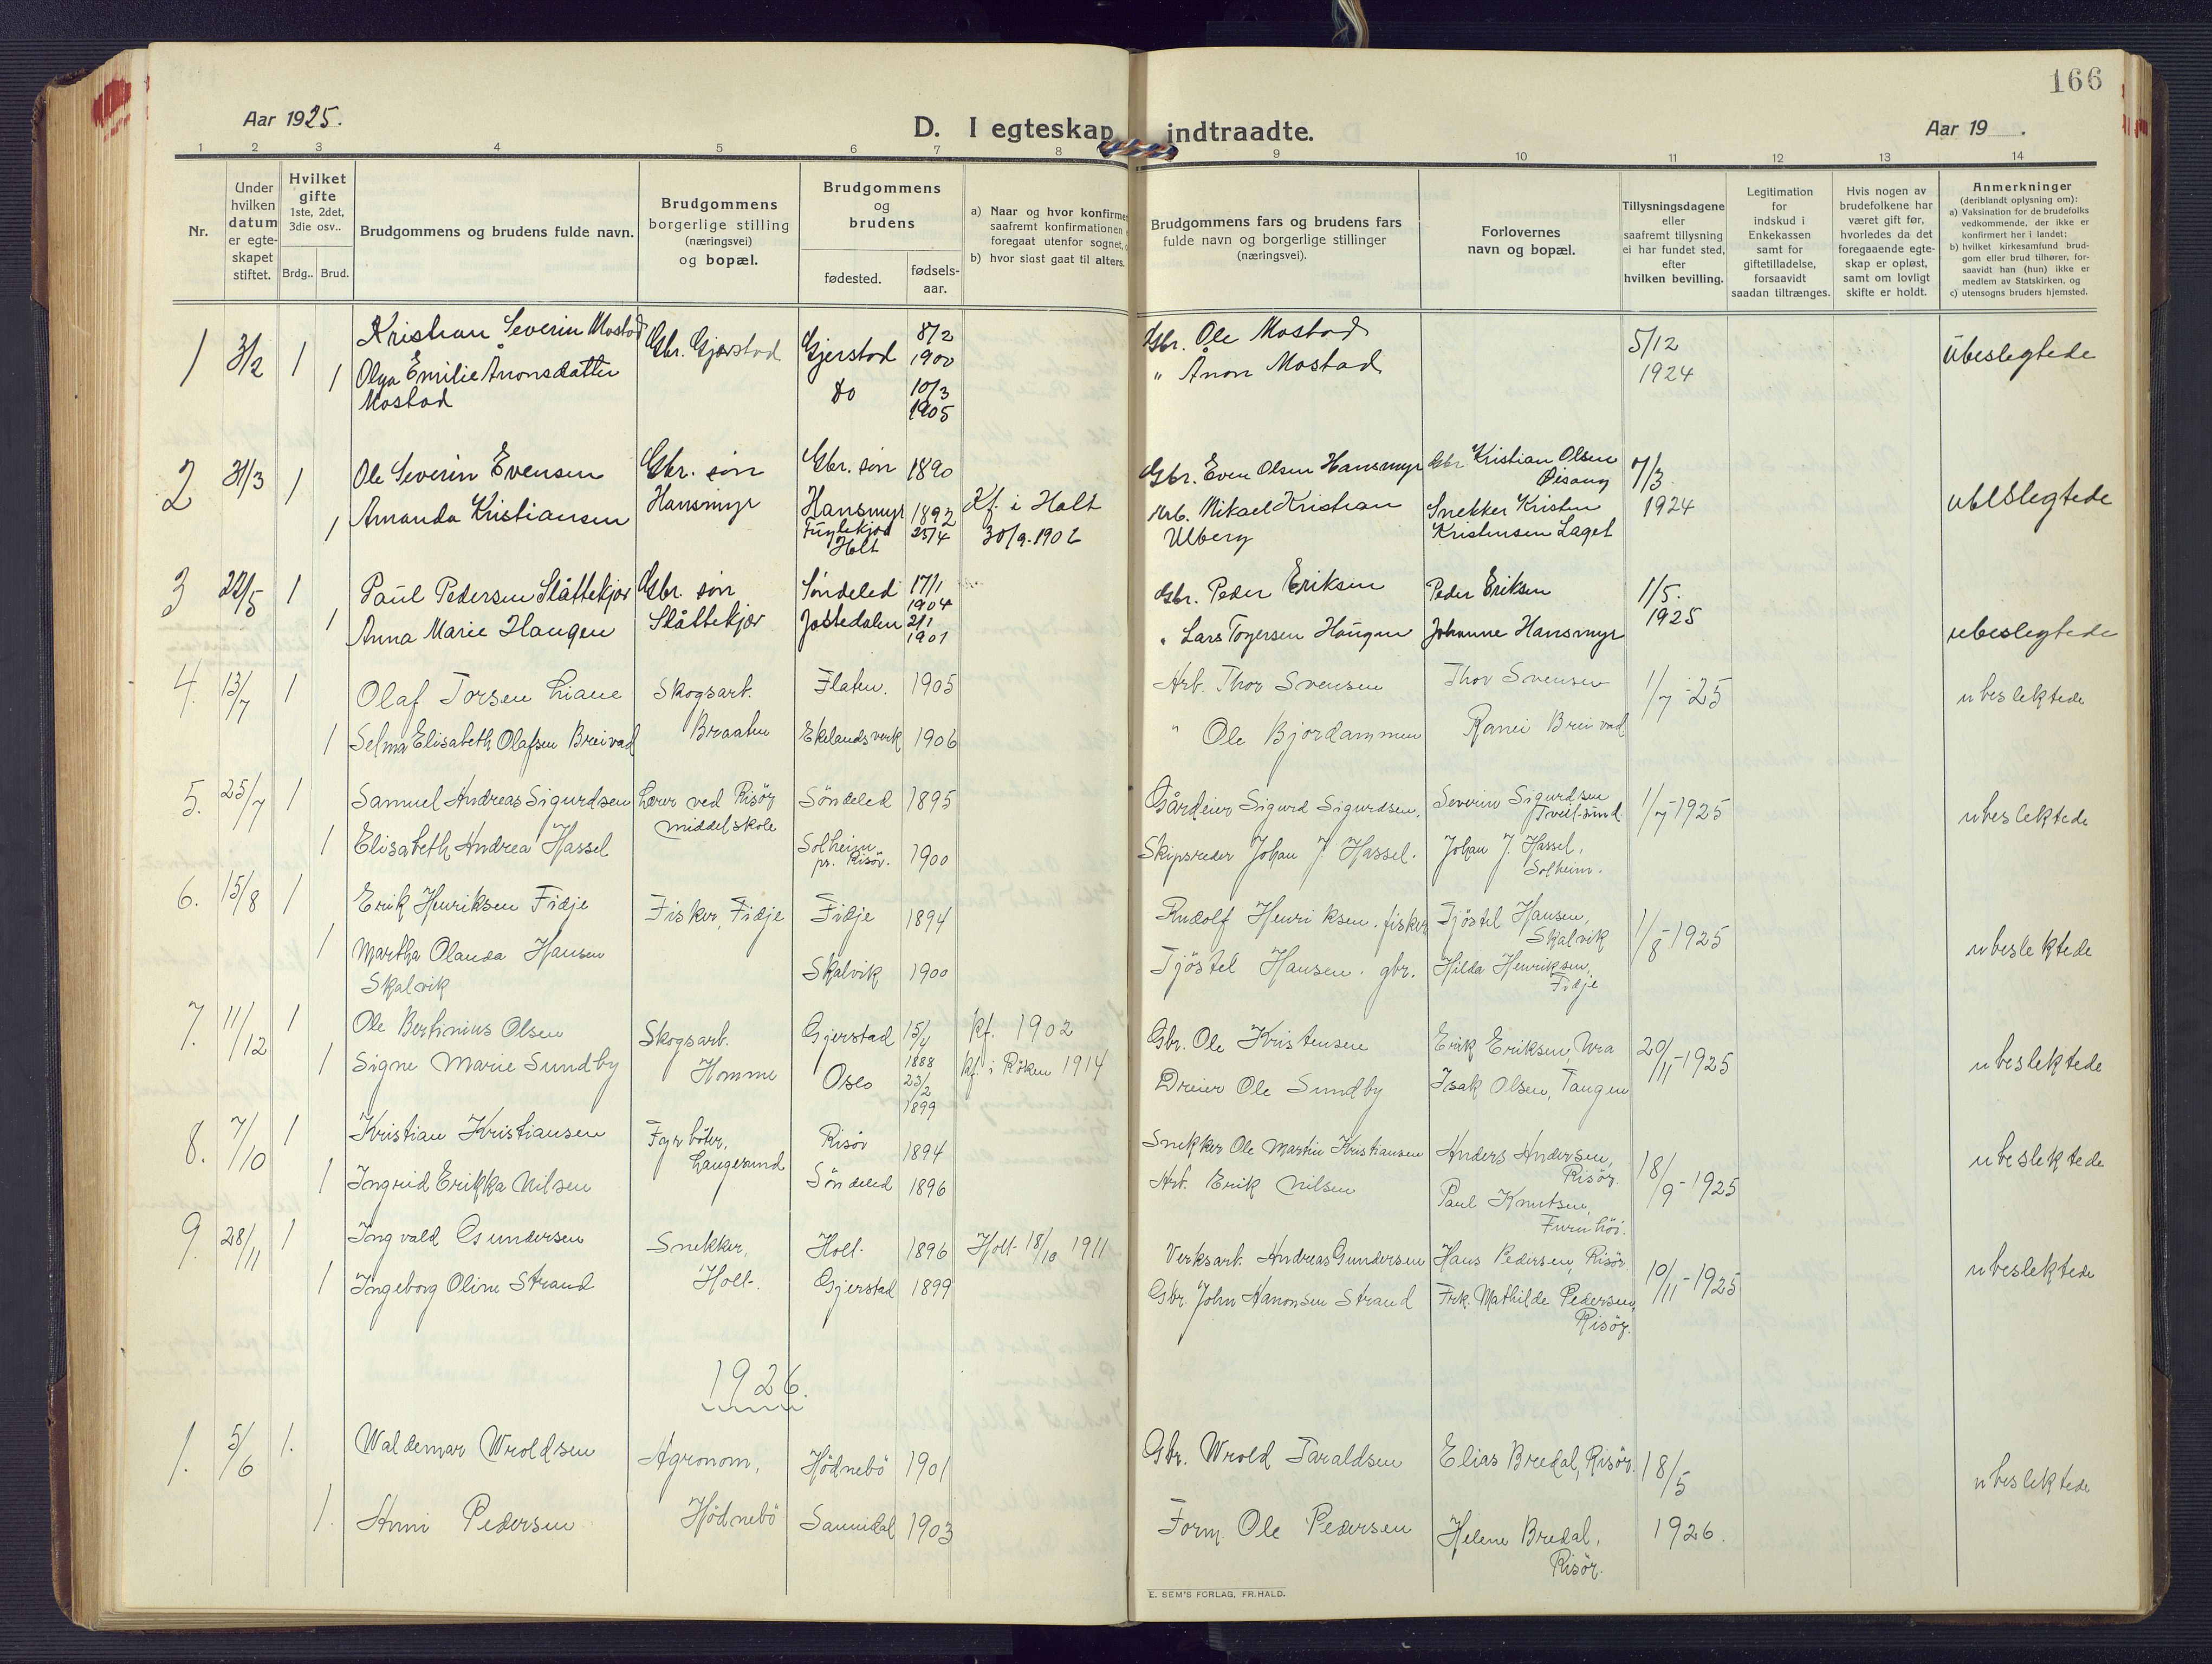 166
Aar 1925.
D. I egteskap indtraadte.
Aar 19 .
1 2 3 4 5 6 7 8 9 10 11 12 13 14
Nr.
Under
hvilken
datum
er egte-
skapet
stiftet.
Hvilket
gifte
1ste, 2det,
3die osv..
Brdg.. Brud.
Brudgommens og brudens fulde navn.
Brudgommens
borgerlige stilling
(næringsvei)
og bopæl.
Brudgommens
og
brudens
fødested.
fødsels-
aar.
a) Naar og hvor konfirme
saafremt konfirmationen
foregaat utenfor sognet,
b) hvor sidst gaat til alters.
Brudgommens fars og brudens fars
fulde navn og borgerlige stillinger
(næringsvei).
Forlovernes
navn og bopæl.
Tillysningsdagene
eller
saafremt tillysning
ei har fundet sted,
efter
hvilken bevilling.
Legitimation
for
indskud i
Enkekassen
samt for
giftetilladelse,
forsaavidt
saadan tiltrænges.
Hvis nogen av
brudefolkene har
været gift før,
hvorledes da det
foregaaende egte-
skap er opløst,
samt om lovligt
skifte er holdt.
Anmerkninger
(deriblandt oplysning om):
a) Vaksination for de brudefolks
vedkommende, der ikke er
konfirmert her i landet;
b) hvilket kirkesamfund brud-
gom eller brud tilhører, for-
saavidt han (hun) ikke er
medlem av Statskirken, og
c) utensogns bruders hjemsted.
1 3/2 1 Kristian Severin Mostad Gbr. Gjerstad Gjerstad 8/2 1900 Gbr. Ole Mostad 5/12 1924 Ubeslegtede
1 Olga Emilie Ånonsdatter Do 10/3 1905 " Ånon Mostad
Mostad
2 31/3 1 Ole Severin Evensen Gbr. søn Gbr. søn 1890 Gbr. Even Olsen Hansmyr Gbr Kristian Olsen 7/3 1924 ubeslegtede
Øisang
1 Amanda Kristiansen Hansmyr Hansmyr 1892 Kf. i Holt Arb. Mikael Kristian Snekker Kristen
Holt 25/4 30/9.1906 Ulberg Kristensen Laget
3 22/5 1 Paul Pedersen Slåttekjær Gbr. søn Søndeled 17/1 1904 Gbr. Peder Eriksen Peder Eriksen 1/5. 1925 ubeslegtede
1 Anna Marie Haugen Slåttekjær Jostedalen 2/1 1901 " Lars Haugen Johanne Hansmyr
4. 13/7 1 Olaf Torsen Liane Skogsarb. Flaten. 1905 Arb. Thor Svensen Thor Svensen 1/7-25 ubeslektede
1 Selma Elisabeth Olafsen Breivad Braaten Ekelandsverk 1906 " Ole Bjordammen Breivad
5. 25/7 1 Samuel Andreas Sigurdsen Lærer ved Risør Søndeled 1895 Gårdeier Sigurd Sigurdsen. Severin Sigurdsen 1/7-1925 ubeslektede
middelskole Tveit-sund.
1 Elisabeth Andrea Hassel Solheim 1900 Skipsreder Johan J. Hassel. Johan J. Hassel,
pr. Risør. Solheim.
6. 15/8 1 Erik Henriksen Fidje Fisker, Fidje Fidje 1894 Rudolf Henriksen. fisker Tjöstel Hansen, 1/8-1925 ubeslektede
Skalvik
1 Martha Olanda Hansen Skalvik 1900 Tjöstel Hansen. gbr. Hilda Henriksen,
Skalvik Fidje
7. 11/12 1 Ole Bertinius Olsen Skogsarb. Gjerstad 15/4 1888 kf. 1902 Gbr. Ole Kristensen Erik Eriksen, Wra 20/11-1925 ubeslektede
1 Signe Marie Sundby Homme Oslo 23/2 1899 kf. i Röken 1914 Dreier Ole Sundby Isak Olsen, Tangen
8. 7/10 1 Kristian Kristiansen Fyrböter, Risör 1894 Snekker Ole Martin Kristiansen Anders Andersen, 18/9-1925 ubeslektede
Langesund Risör.
1 Ingrid Erikka Nilsen Söndeled 1896 Arb. Erik Nilsen Paul Knutsen,
Furuhöi.
9. 28/11 1 Ingvald Gundersen Snekker, Holt 1896 Holt 18/10 1911 Verksarb. Andreas Gundersen Hans Pedersen, Risör 10/11-1925 ubeslektede
1 Ingeborg Oline Strand Holt. Gjerstad 1899 Gbr. John Aanonsen Strand Frk. Mathilde Pedersen,
Risör.
1926.
1. 5/6 1. Waldemar Wroldsen Agronom, Hödnebö 1901 Gbr. Wrold Taraldsen Elias Bredal, Risör. 18/5 ubeslektede
1. Anni Pedersen Hödnebö Sannidal 1903 Form. Ole Pedersen Helene Bredal, 1926.
Risör.
E. SEM'S FORLAG, FR.HALD.